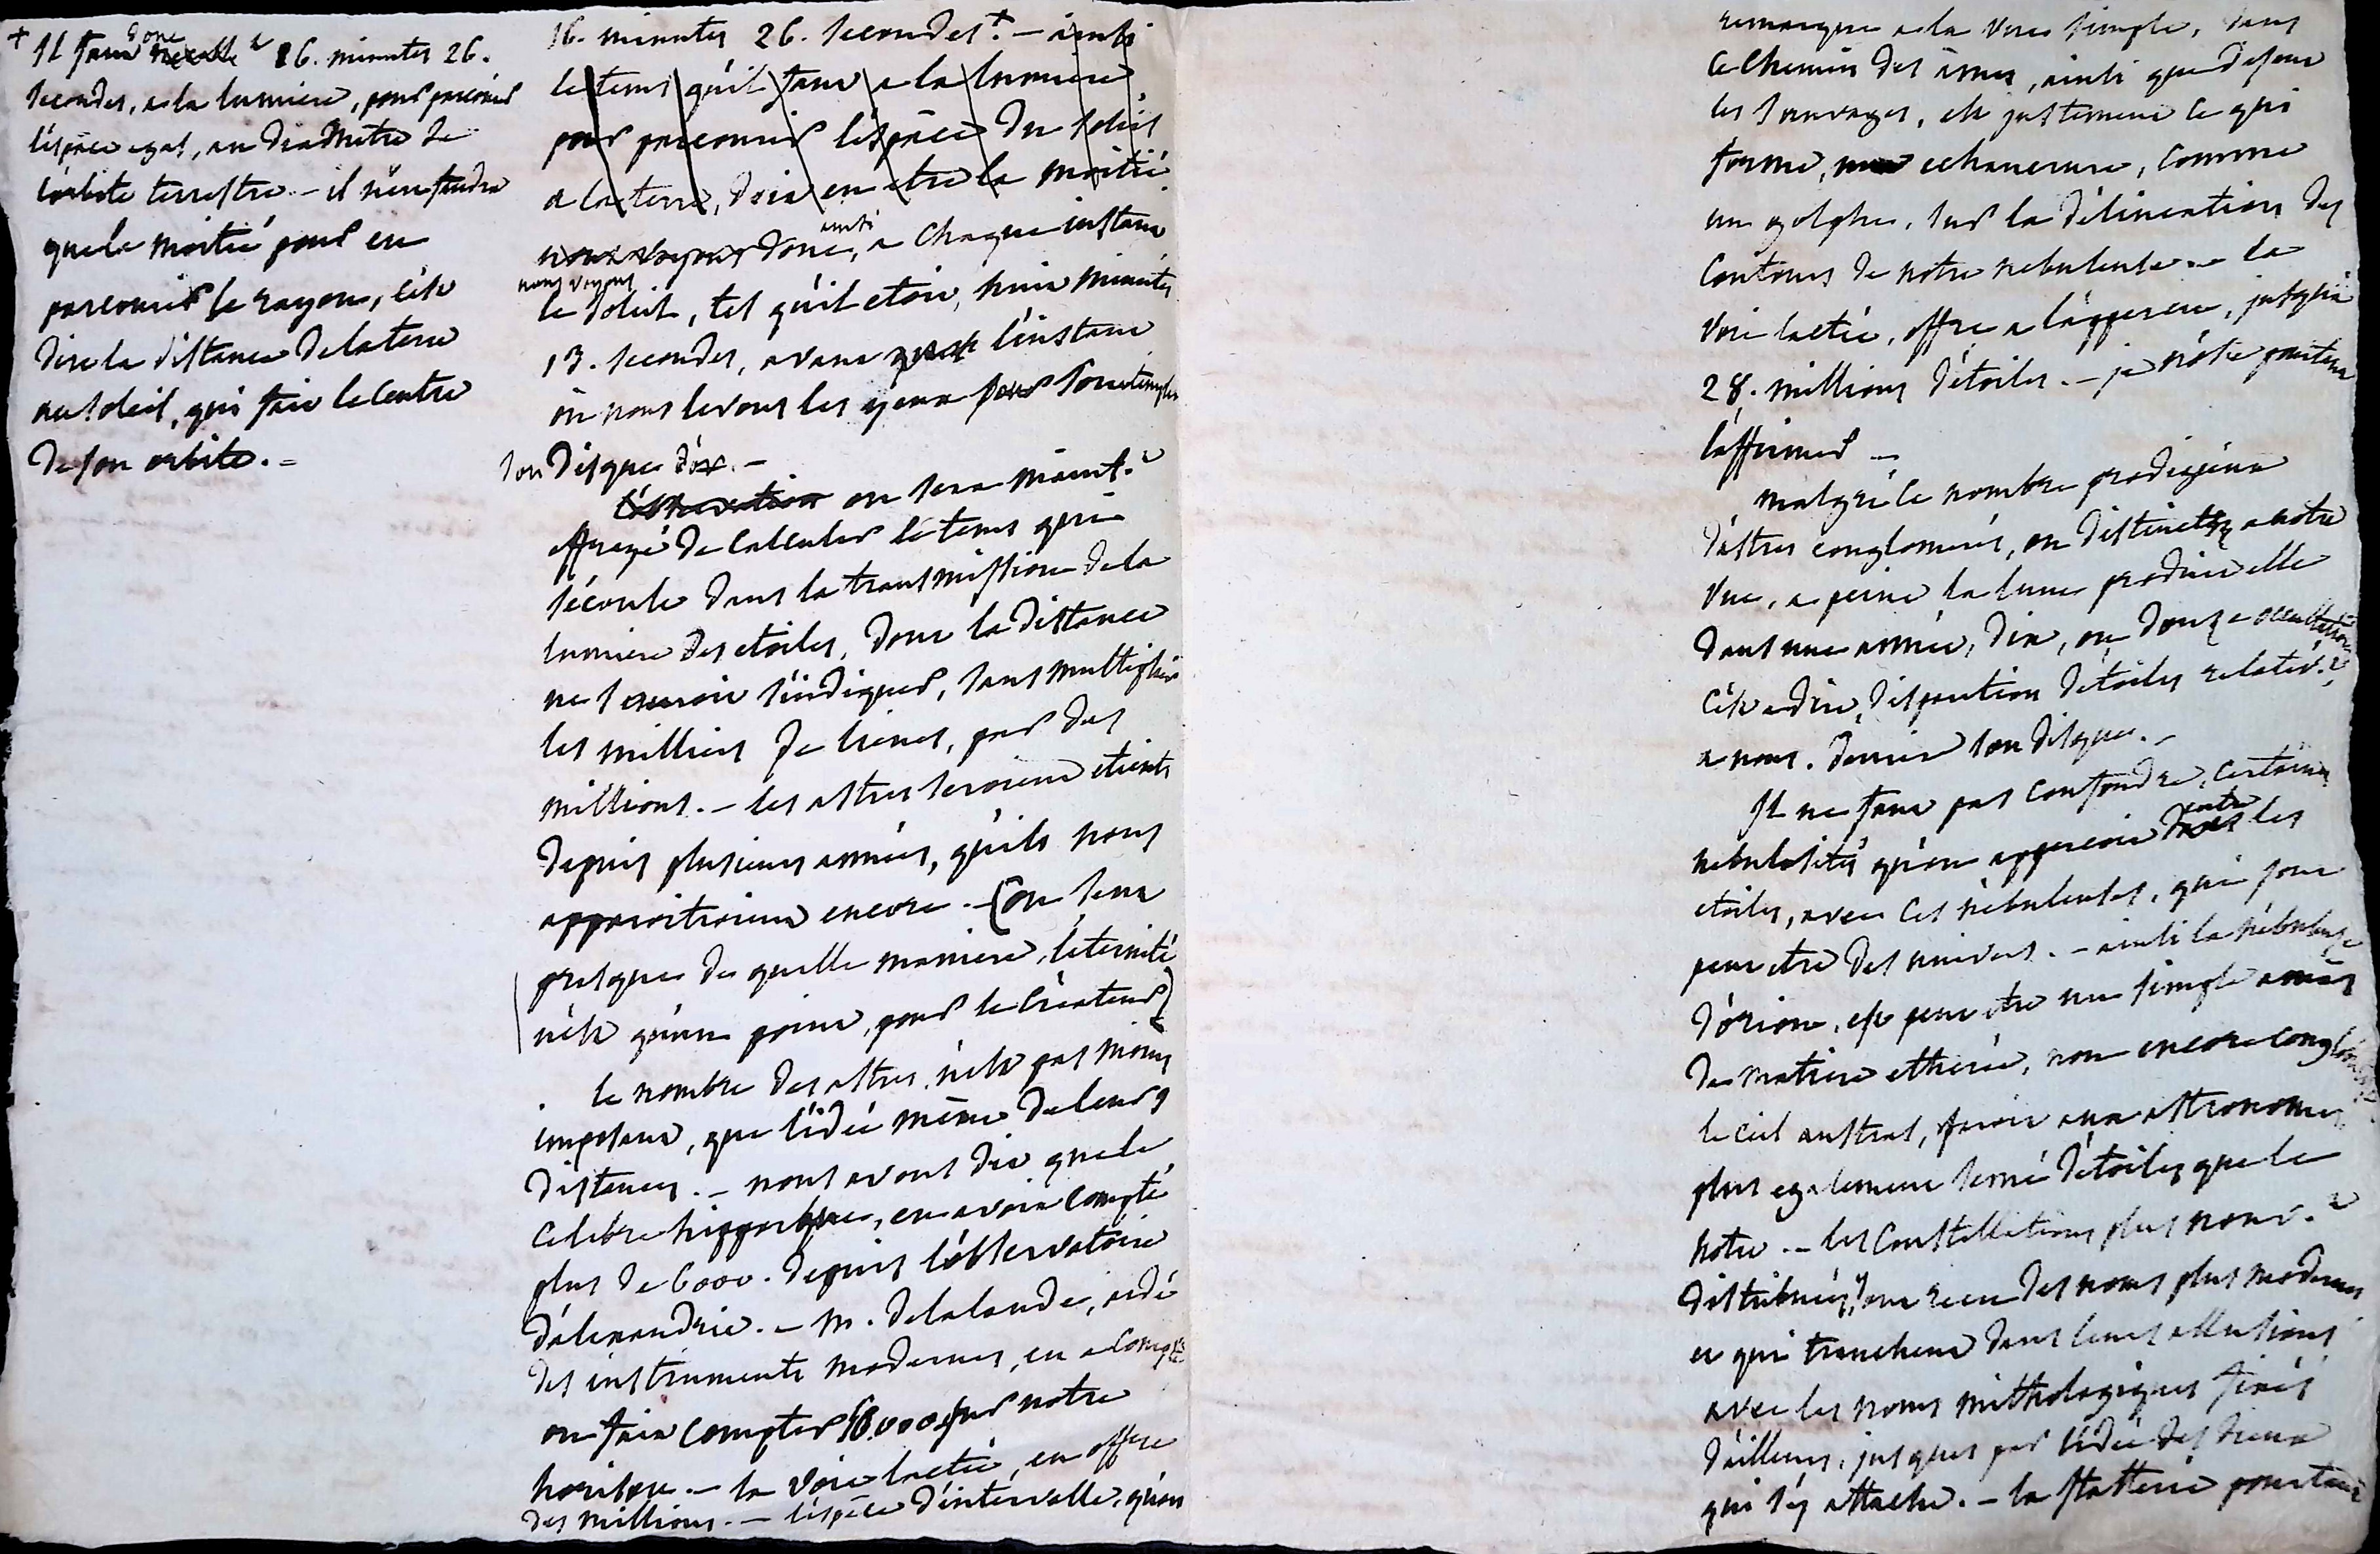 + Il faut donc 16. minutes 26.
secondes, a la lumiere, pour parcourir
l'éspace egal, au diamétre de
l'orbite terrestre. – il n'en faudra
que la moitié pour en
parcourir le rayon, c'est a
dire la distance de la terre
au soleil, qui fait le centre
de son orbite. =
16. minutes 26. secondes. + – ainsi
le tems qu'il faut a la lumiere
pour parcourir l'éspace du soleil
a la terre, doit en etre la moitié
nous voyons donc, ainsi a chaque instant
nous voyons
le soleil, tel qu'il etoit, huit minutes
13. secondes, avant l'instant
où nous levons les yeux pour contempler
son disque d'or. –
L'observation on sera maint.t
effrayé de calculer le tems qui
s'écoule dans la transmission de la
lumiere des etoiles, dont la distance
ne sauroit s'indiquer, sans multiplier
les milliers de lieues, par des
millions. – les astres seroient eteints
depuis plusieurs années, qu'ils nous
apparoitroient encore. – (on sent
presque de quelle maniere, l'éternité
n'est qu'un point, pour le Créateur)
le nombre des astres, n'est pas moins
imposant, que l'idée même de leurs
distances. – nous avons dit que le
celebre hipparque, en avoit compté
plus de 6000. depuis l'observatoire
d'alexandrie. – M. delalande, aidé
des instruments modernes, en a compté
ou fait compter 50.000 sur notre
horison. – la voie lactée, en offre
des millions. – l'éspèce d'intervalle, qu'on
remarque a la vue simple, dans
ce chemin des âmes, ainsi que disent
les sauvages, est justement ce qui
forme, une echancrure, comme
un golphe, sur la délineation des
contours de notre nebuleuse. – la
voie lactée, offre a l'apperçu, jusqu'à
28. millions d'étoiles. – je n'ose pourtant
l'affirmer –
malgré le nombre prodigieux
d'astres conglomérés, ou distincts, a notre
vue, a peine la lune produit elle
dans une année, dix, ou douze occultations
c'est a dire, disparition d'étoiles relativ.t
a nous. derriere son disque. –
Il ne faut pas confondre, certaines
nebulosités qu'on apperçoit entre les
etoiles, avec ces nébuleuses, qui sont
peut etre des univers. – ainsi la nébuleuse
d'orion, est peut etre un simple amas
de matiere etherée, non encore conglomérée.
le ciel austral, paroit aux astronomes,
plus egalement semé d'étoiles que le
notre. – les constellations plus nouv.t
distribuées, y, ont reçu des noms plus modernes
et qui tranchent dans leurs allusions
avec les noms mithologiques fixés
d'ailleurs, jusques par l'idée des dieux
qui s'y attache. – la flatterie pourtant